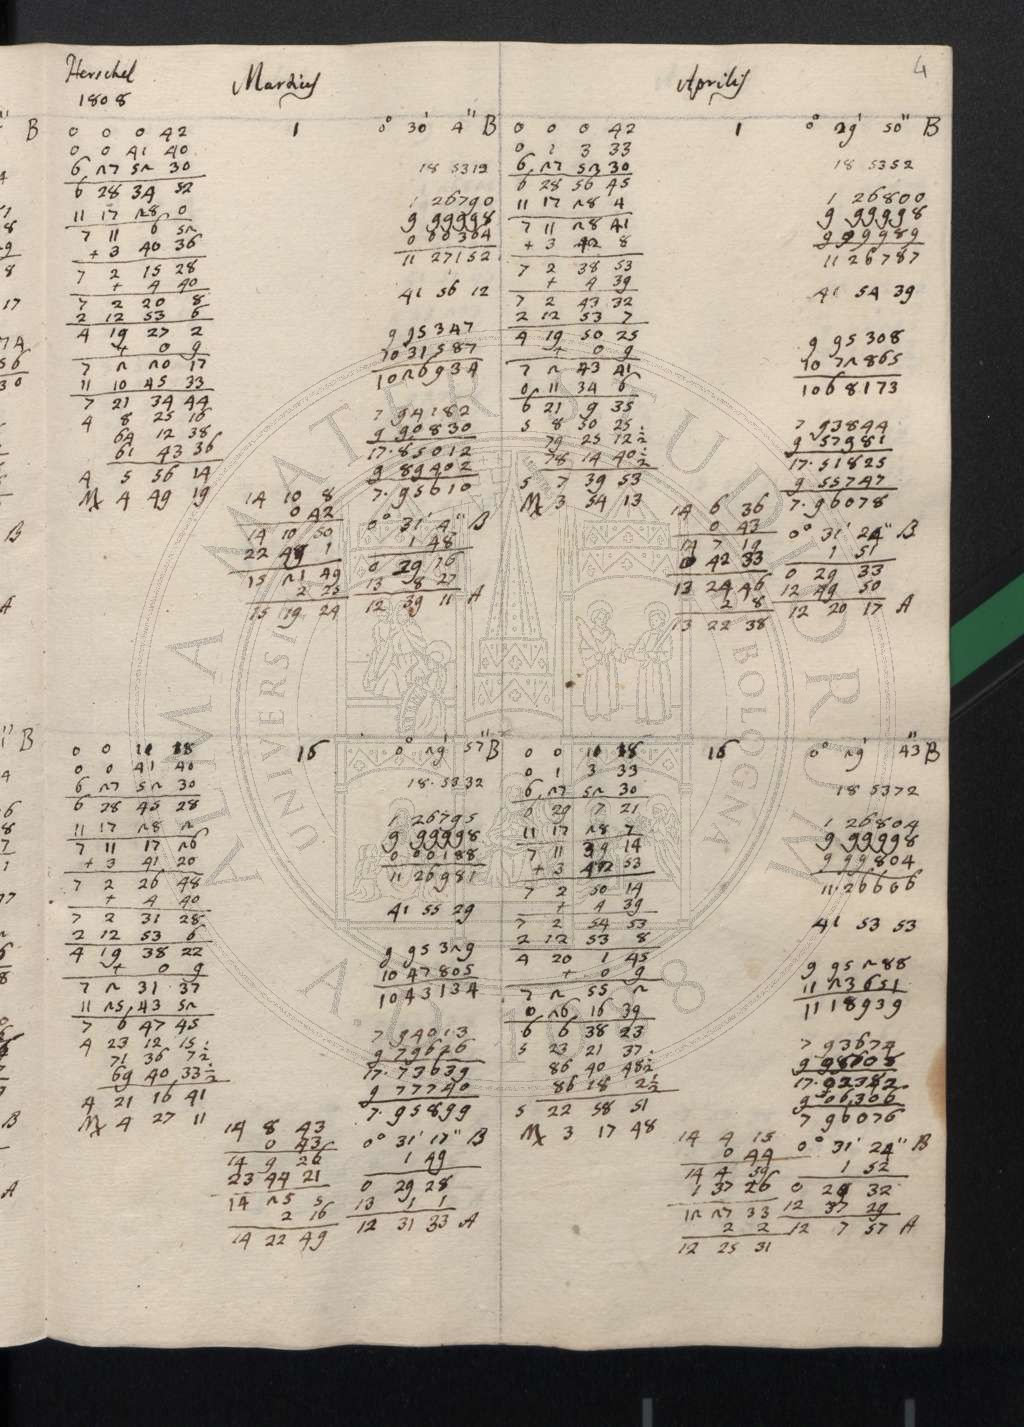 4
Herschel
1808
Martius
Aprilis
1
0° 30' 4" B
0 0 0 42
0 0 41 40
6 27 52 30
6 28 34 52
11 17 28 0
7 11 6 52
+ 3 40 36
7 2 15 28
+ 4 40
7 2 20 8
2 12 53 6
4 19 27 2
+ 0 9
7 2 20 17
11 10 45 33
7 21 34 44
4 8 25 16
64 12 38
61 43 36
4 5 56 14
4 49 19
18 5312
1 26790
9 99998
0 00364
11 27152
41 56 12
9 95347
10 31587
10 26934
7 94182
9 90830
17.85012
9 89402
7.95610
14 10 8
0 42
14 10 50
22 49 1
15 21 49
2 25
15 19 24
0° 31' 4" B
1 48
0 29 16
13 8 27
12 39 11 A
1
0° 29' 50" B
0 0 0 42
0 1 3 33
6 27 52 30
6 28 56 45
11 17 28 4
7 11 28 41
+ 3 42 8
7 2 38 53
+ 4 39
7 2 43 32
2 12 53 7
4 19 50 25
+ 0 9
7 2 43 41
0 11 34 6
6 21 9 35
5 8 50 25
79 25 12½
78 14 40½
5 7 39 53
3 54 13
18 5352
1 26800
9 99998
9 99989
11 26787
41 54 39
9 95308
10 72865
10 68173
7 93844
9 57981
17.51825
9 55747
7.96078
14 6 36
0 43
14 7 19
0 42 33
13 24 46
2 8
13 22 38
0° 31' 24" B
1 51
0 29 33
12 49 50
12 20 17 A
16
0° 29' 57" B
0 0 11 18
0 0 41 40
6 27 52 30
6 28 45 28
11 17 28 2
7 11 17 26
+ 3 41 20
7 2 26 48
+ 4 40
7 2 31 28
2 12 53 6
4 19 38 22
+ 0 9
7 2 31 37
11 25 43 52
7 6 47 45
4 23 12 15
71 36 7½
69 40 33½
4 21 16 41
4 27 11
18.5332
1 26795
9 99998
0 00188
11 26981
41 55 29
9 95329
10 47805
10 43134
7 94013
9 79626
17.73639
9 77740
7.95899
14 8 43
0 43
14 9 26
23 44 21
14 25 5
2 16
14 22 49
0° 31' 17" B
1 49
0 29 28
13 1 1
12 31 33 A
16
0° 29' 43 B
0 0 11 18
0 1 3 33
6 27 52 30
6 29 7 21
11 17 28 7
7 11 39 14
+ 3 42 53
7 2 50 14
+ 4 39
7 2 54 53
2 12 53 8
4 20 1 45
+ 0 9
7 2 55 2
0 26 16 39
6 6 38 23
5 23 21 37
86 40 48½
86 18 2½
5 22 58 51
3 17 48
18 5372
1 26804
9 99998
9 99804
11.26606
41 53 53
9 95288
11 23651
11 18939
7 93674
9 98608
17.92282
9 06306
7 96076
14 4 15
0 44
14 4 59
1 37 26
12 27 33
2 2
12 25 31
0° 31' 24" B
1 52
0 29 32
12 37 29
12 7 57 A
ALMA MATER STUDIORUM
UNIVERSITÀ
BOLOGNA
A.D. 1088